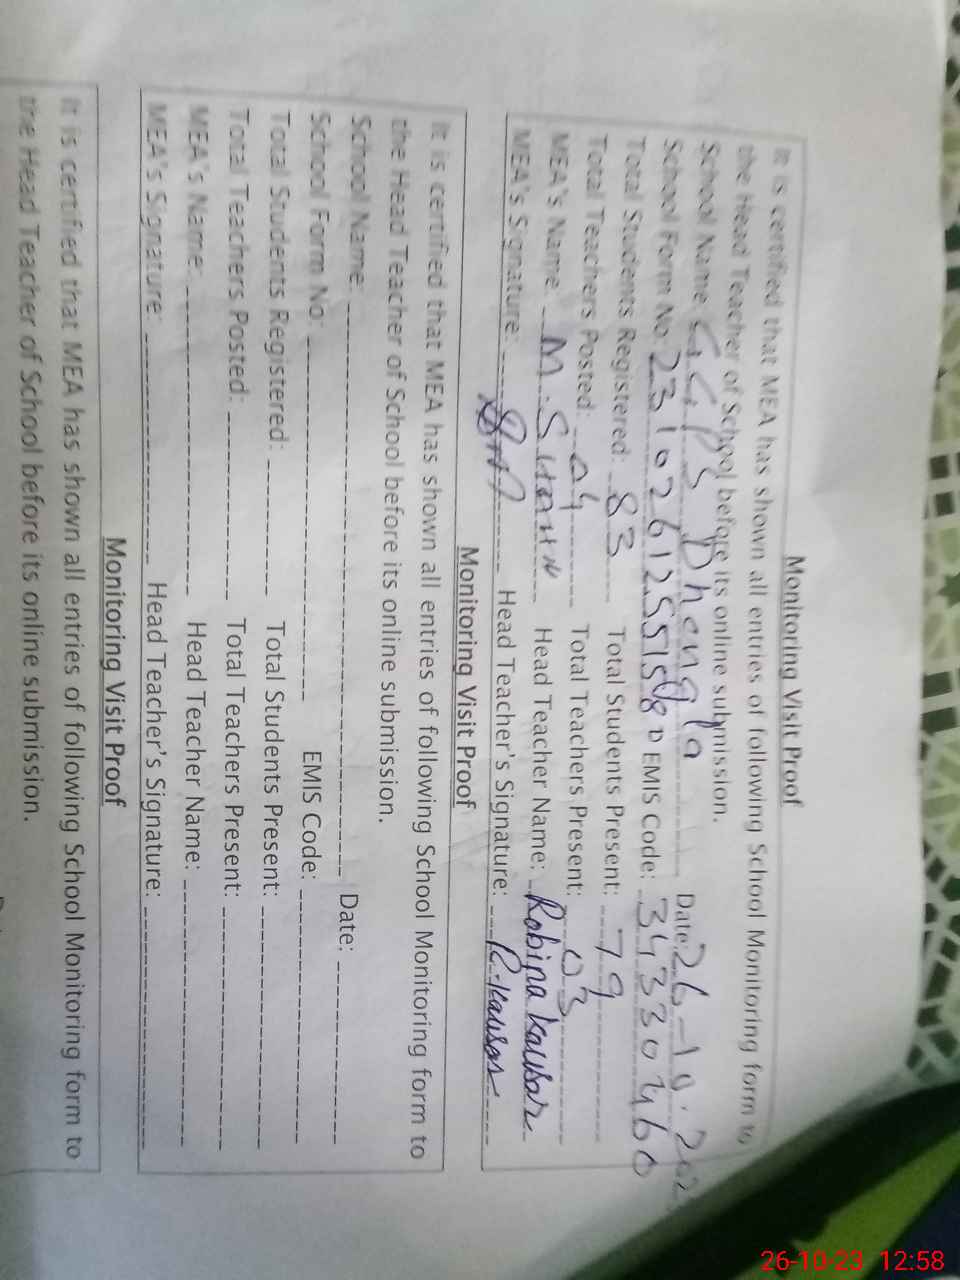 Monitoring Visit Proof
It is certified that MEA has shown all entries of following School Monitoring form to
the Head Teacher of School before its online submission.
School Name GGPS Dhengla Date: 26-10-202
School Form No. EMIS Code: 34330460
Total Students Registered: 83 Total Students Present: 79
Total Teachers Posted: 04 Total Teachers Present: 03
MEA's Name: M. Head Teacher Name: Robina Kausar
MEA's Signature: Head Teacher's Signature: R.Kausar
Monitoring Visit Proof
It is certified that MEA has shown all entries of following School Monitoring form to
the Head Teacher of School before its online submission.
School Name: Date:
School Form No: EMIS Code:
Total Students Registered: Total Students Present:
Total Teachers Posted: Total Teachers Present:
MEA's Name: Head Teacher Name:
MEA's Signature: Head Teacher's Signature:
Monitoring Visit Proof
It is certified that MEA has shown all entries of following School Monitoring form to
the Head Teacher of School before its online submission.
26-10-23 12:58